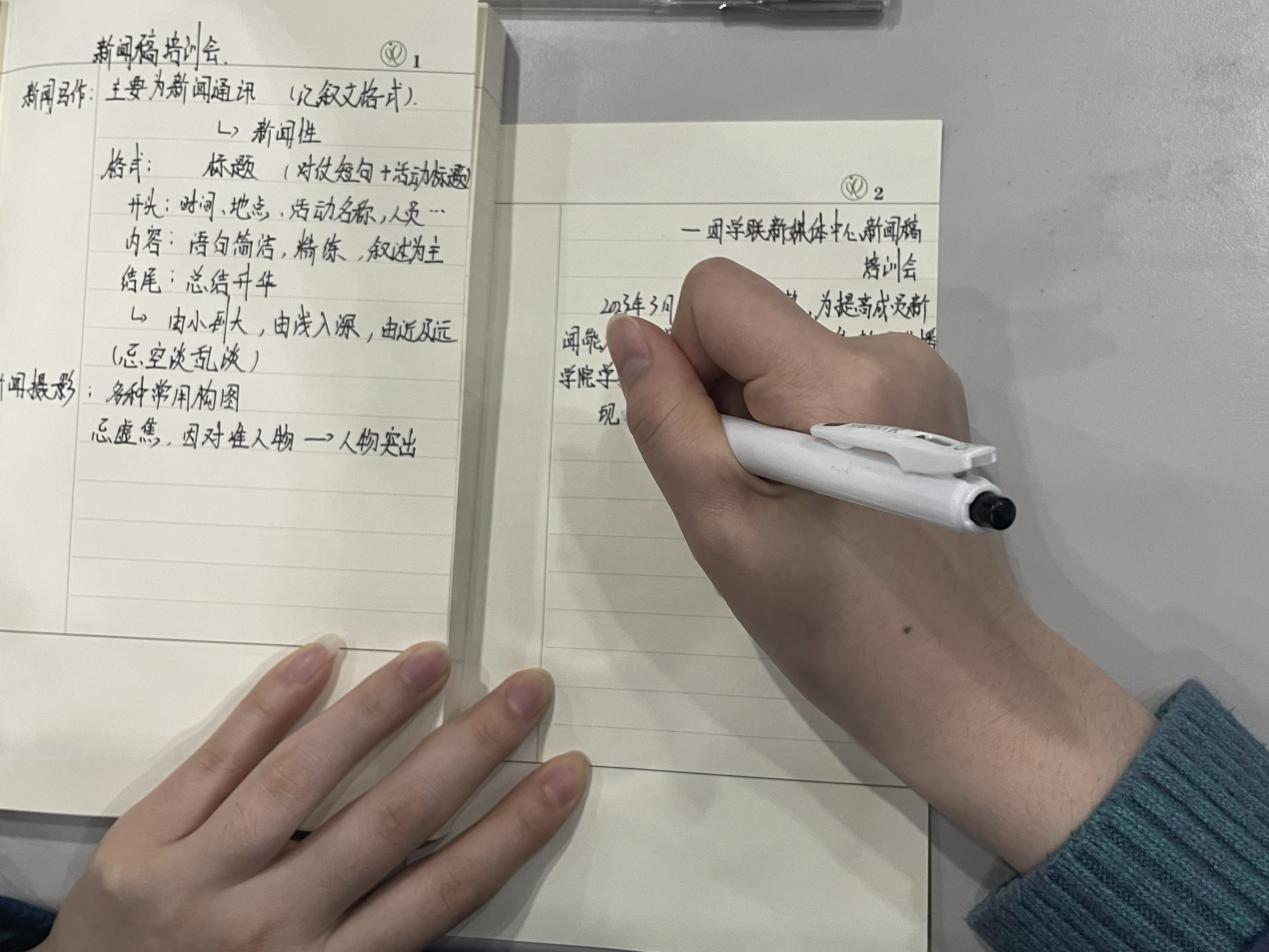 新闻稿培训会.
1
新闻写作: 主要为新闻通讯 (记叙文格式).
↳ 新闻性
格式: 标题 (对仗短句+活动标题)
开头: 时间、地点、活动名称,人员…
内容: 语句简洁,精练,叙述为主
结尾: 总结升华
↳ 由小到大,由浅入深,由近及远
(忌空谈乱谈)
闻摄影: 各种常用构图
忌虚焦,因对准人物→人物突出
2
—团学联新媒体中心新闻稿
培训会
2023年3月 ,为提高成员新
闻能 播
学院学
现